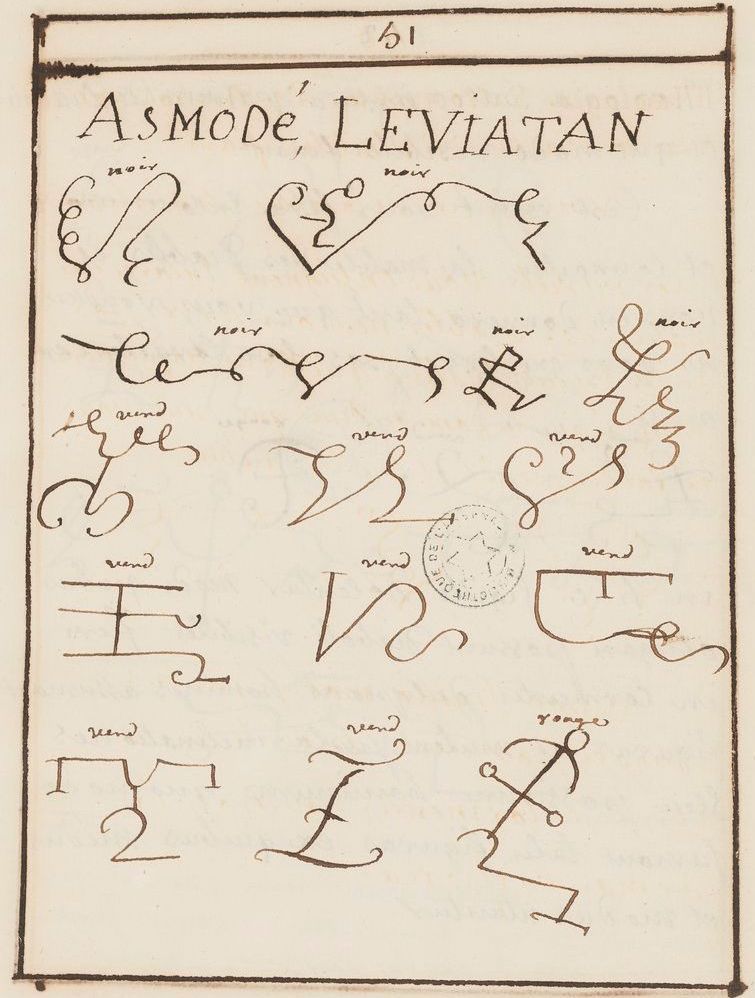 51
ASMODé, LEVIATAN
noir noir
noir noir noir
verd verd verd
verd verd verd
verd verd rouge
BIBLIOTHEQUE DE